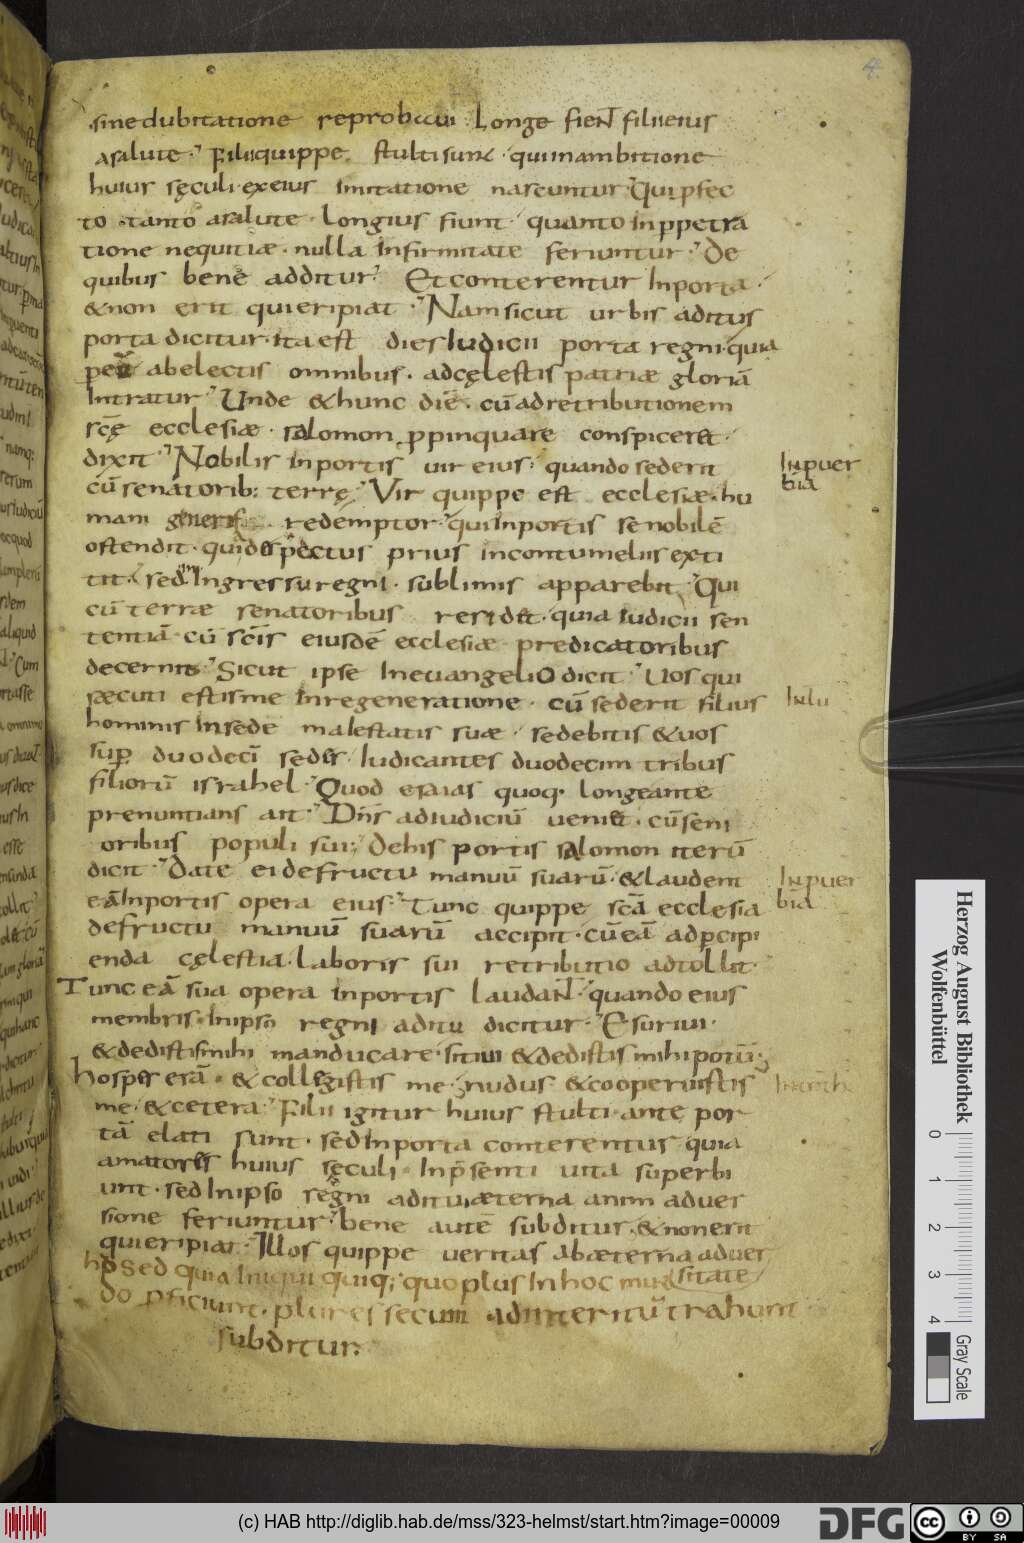 4
sine dubitatione reprobaui Longe fieNt filii eius
a salute. Filii quippe stulti sunt. qui in ambitione
huius sęculi. ex eius imitatione nascuntur Qui pfec
to. tanto a salute. longius fiunt. quanto in ppetra
tione nequitiæ. nulla infirmitate feriuntur. De
quibus bene additur. Et conterentur In porta.
& non erit qui eripiat. Nam sicut urbis aditus
porta dicitur. ita est dies Iudicii porta regni. quia
p eu ab electis omnibus. ad cęlestis patriæ gloriā
Intratur. Unde & hunc diē. cū ad retributionem
scę ecclesiæ. salomon ppinquare conspiceret.
dixit. Nobilis in portis uir eius. quando sederit
cū senatorib: terrę. Vir quippe est ecclesiæ. hu
mani generis redemptor. qui In portis se nobilē
ostendit. qui despectus prius in contumeliis exti
tit. sed in Ingressu regni. sublimis apparebit. Qui
cū terræ senatoribus residet. quia iudicii sen
tentiā cū scis eiusdē ecclesiæ predicatoribus
decernit. Sicut ipse In euangeliO dicit. Uos qui
secuti estis me In regeneratione. cū sederit filius
hominis In sede maiestatis suæ. sedebitis & uos
sup duodeci sedes. Iudicantes duodecim tribus
filiorū israhel. Quod esaias quoq. longe ante
prenuntians ait. Dns ad iudiciū ueniet. cū seni
oribus populi sui; De his portis salomon iterū
dicit. Date ei de fructu manuū suarū. & laudent
eā In portis opera eius. Tunc quippe scā ecclesia
de fructu manuū suarū accipit. cū eā ad pcipi
enda cęlestia. laboris sui retributio adtollit.
Tunc eā sua opera in portis laudaNt. quando eius
membris. In ipso regni aditu dicitur. Esuriui.
& dedistis mihi manducare. sitiui & dedistis mihi potū.
hospes erā. & collegistis me. nudus & cooperuistis
me. & cetera. Filii igitur huius stulti. ante por
tā elati sunt. sed In porta conterentur. quia
amatores huius sęculi. In psenti uita superbi
unt. sed In ipso regni aditu. æterna animaduer
sione feriuntur. bene autē subditur. & non erit
qui eripiat. Illos quippe ueritas ab æterna aduer
hp sed quia Iniqui quiq; quo plus In hoc mun sitate
do pficiunt. plures secum ad interitū trahunt
subditur.
In puer
bia
In lu
In puer
bia
Herzog August Bibliothek
Wolfenbüttel
0 1 2 3 4
Gray Scale
(c) HAB http://diglib.hab.de/mss/323-helmst/start.htm?image=00009
DFG
cc
BY SA